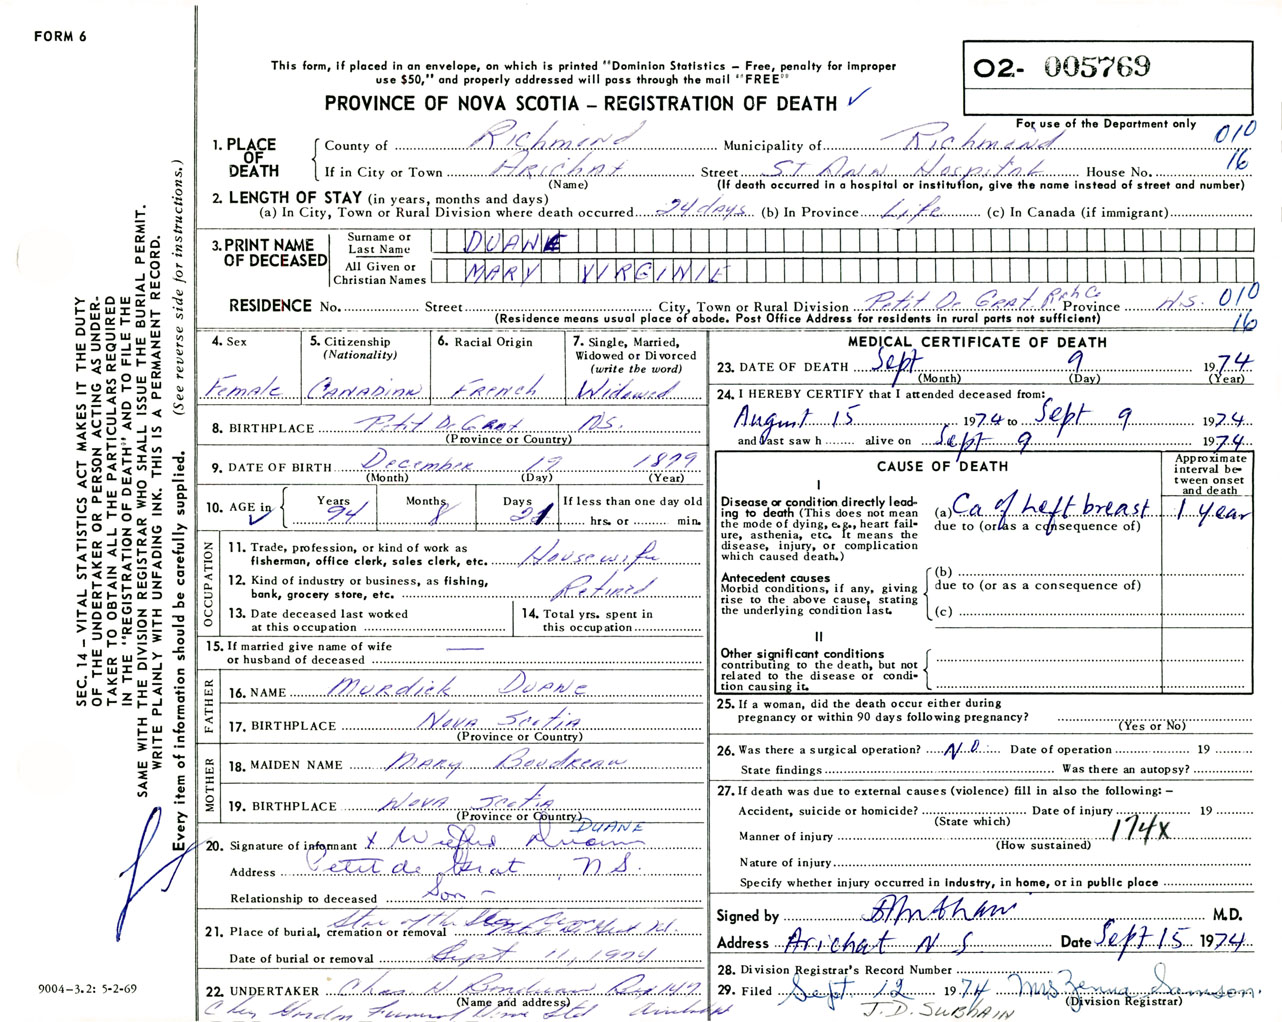 FORM 6
This form, if placed in an envelope, on which is printed "Dominion Statistics – Free, penalty for improper
use $50," and properly addressed will pass through the mail "FREE"
PROVINCE OF NOVA SCOTIA – REGISTRATION OF DEATH ✓
O2- 005769
For use of the Department only
010
16
1. PLACE OF DEATH
County of Richmond Municipality of Richmond
If in City or Town Arichat Street St Ann Hospital House No.
(Name) (If death occurred in a hospital or institution, give the name instead of street and number)
2. LENGTH OF STAY (in years, months and days)
(a) In City, Town or Rural Division where death occurred 24 days (b) In Province Life (c) In Canada (if immigrant)
3. PRINT NAME OF DECEASED
Surname or Last Name DUANE
All Given or Christian Names MARY VIRGINIE
RESIDENCE No. Street City, Town or Rural Division Petit De Grat. Rich Co Province N.S. 010
(Residence means usual place of abode. Post Office Address for residents in rural parts not sufficient) 16
4. Sex Female
5. Citizenship (Nationality) Canadian
6. Racial Origin French
7. Single, Married, Widowed or Divorced (write the word) Widowed
8. BIRTHPLACE Petit De Grat N.S.
(Province or Country)
9. DATE OF BIRTH December 19 1879
(Month) (Day) (Year)
10. AGE in ✓ Years 94 Months 8 Days 21 If less than one day old
hrs. or min.
OCCUPATION
11. Trade, profession, or kind of work as
fisherman, office clerk, sales clerk, etc. Housewife
12. Kind of industry or business, as fishing,
bank, grocery store, etc. Retired
13. Date deceased last worked
at this occupation
14. Total yrs. spent in
this occupation
15. If married give name of wife
or husband of deceased —
FATHER
16. NAME Murdick Duane
17. BIRTHPLACE Nova Scotia
(Province or Country)
MOTHER
18. MAIDEN NAME Mary Boudreau
19. BIRTHPLACE Nova Scotia
(Province or Country)
DUANE
20. Signature of informant x Wilfred Duann
Address Petit de Grat N S.
Relationship to deceased Son -
21. Place of burial, cremation or removal Star of the Sea
Date of burial or removal Sept 11, 1974
22. UNDERTAKER Chas H Boudreau
(Name and address)
Gordon Funeral Home Ltd
MEDICAL CERTIFICATE OF DEATH
23. DATE OF DEATH Sept 9 1974
(Month) (Day) (Year)
24. I HEREBY CERTIFY that I attended deceased from:
August 15 1974 to Sept 9 1974
and last saw h alive on Sept 9 1974
CAUSE OF DEATH
Approximate interval between onset and death
I
Disease or condition directly lead-
ing to death (This does not
mean the mode of dying, e.g., heart fail-
ure, asthenia, etc. It means the
disease, injury, or complication
which caused death.)
(a) Ca of Left breast 1 year
due to (or as a consequence of)
Antecedent causes
Morbid conditions, if any, giving
rise to the above cause, stating
the underlying condition last.
(b)
due to (or as a consequence of)
(c)
II
Other significant conditions
contributing to the death, but not
related to the disease or condi-
tion causing it.
25. If a woman, did the death occur either during
pregnancy or within 90 days following pregnancy?
(Yes or No)
26. Was there a surgical operation? N.O. Date of operation 19
State findings Was there an autopsy?
27. If death was due to external causes (violence) fill in also the following: –
Accident, suicide or homicide? Date of injury 19
(State which)
Manner of injury 174x
(How sustained)
Nature of injury
Specify whether injury occurred in industry, in home, or in public place
Signed by M.D.
Address Arichat N S Date Sept 15 1974
28. Division Registrar's Record Number
29. Filed Sept 12 1974 Mrs Zenna Samson.
(Division Registrar)
J. D. SUBHAIN
SEC. 14 – VITAL STATISTICS ACT MAKES IT THE DUTY
OF THE UNDERTAKER OR PERSON ACTING AS UNDER-
TAKER TO OBTAIN ALL THE PARTICULARS REQUIRED
IN THE "REGISTRATION OF DEATH" AND TO FILE THE
SAME WITH THE DIVISION REGISTRAR WHO SHALL ISSUE THE BURIAL PERMIT.
WRITE PLAINLY WITH UNFADING INK. THIS IS A PERMANENT RECORD.
Every item of information should be carefully supplied. (See reverse side for instructions.)
9004–3.2: 5-2-69